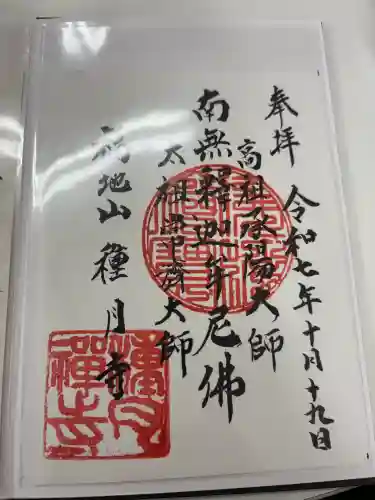 奉拝
令和七年十月十九日
高祖承陽大師
南無釋迦牟尼佛
太祖常濟大師
地山 種月寺